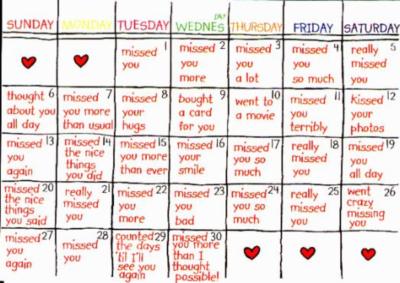 SUNDAY MONDAY TUESDAY WEDNESDAY THURSDAY FRIDAY SATURDAY
missed 1
you
missed 2
you
more
missed 3
you
a lot
missed 4
you
so much
really 5
missed
you
thought 6
about you
all day
missed 7
you more
than usual
missed 8
your
hugs
bought 9
a card
for you
went 10
to
a movie
missed 11
you
terribly
kissed 12
your
photos
missed 13
you
again
missed 14
the nice
things
you did
missed 15
you more
than ever
missed 16
your
smile
missed 17
you so
much
really 18
missed
you
missed 19
you
all day
missed 20
the nice
things
you said
really 21
missed
you
missed 22
you
more
missed 23
you
bad
missed 24
you so
much
really 25
missed
you
went 26
crazy
missing
you
missed 27
you
again
missed 28
you
counted 29
the days
'til I'll
see you
again
missed 30
you more
than I
thought
possible!